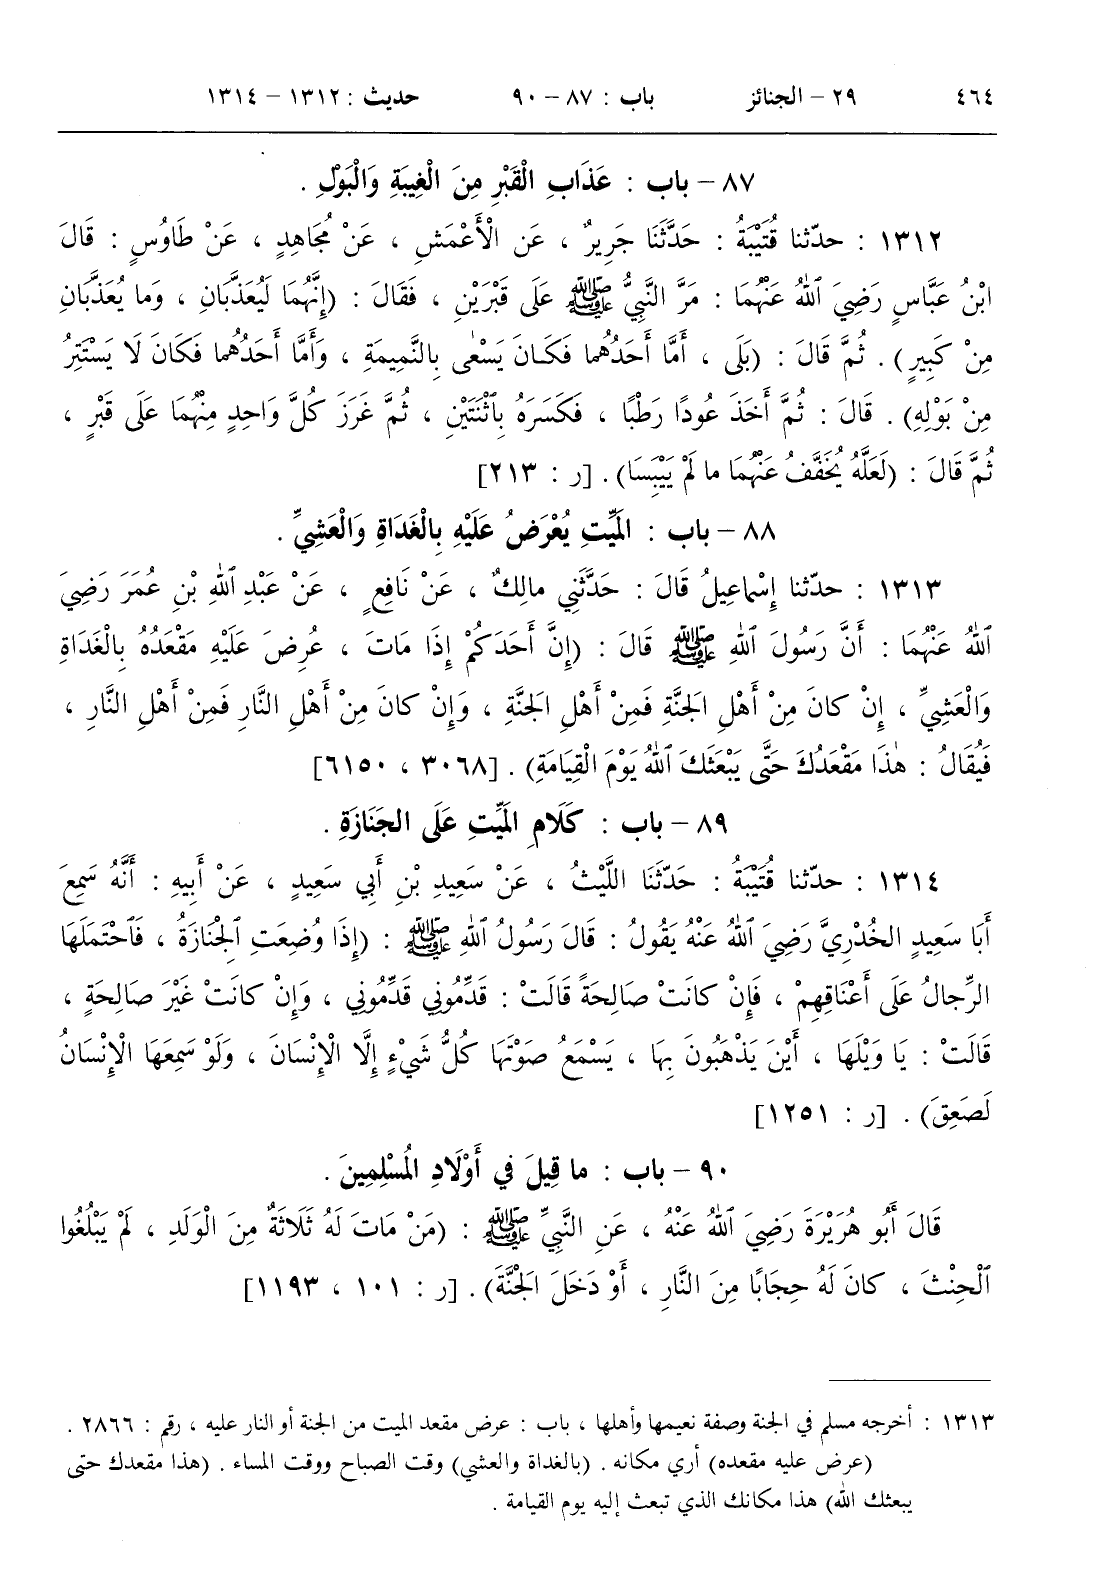 ٤٦٤ ٢٩ – الجنائز باب : ٨٧ – ٩٠ حديث : ١٣١٢ – ١٣١٤
٨٧ – باب : عَذَابِ الْقَبْرِ مِنَ الْغِيبَةِ وَالْبَوْلِ .
١٣١٢ : حدّثنا قُتَيْبَةُ : حَدَّثَنَا جَرِيرٌ ، عَنِ الْأَعْمَشِ ، عَنْ مُجَاهِدٍ ، عَنْ طَاوُسٍ : قَالَ
ابْنُ عَبَّاسٍ رَضِيَ ٱللهُ عَنْهُمَا : مَرَّ النَّبِيُّ ﷺ عَلَى قَبْرَيْنِ ، فَقَالَ : (إِنَّهُمَا لَيُعَذَّبَانِ ، وَما يُعَذَّبَانِ
مِنْ كَبِيرٍ) . ثُمَّ قَالَ : (بَلَى ، أَمَّا أَحَدُهُما فَكَانَ يَسْعٰى بِالنَّمِيمَةِ ، وَأَمَّا أَحَدُهُما فَكَانَ لَا يَسْتَتِرُ
مِنْ بَوْلِهِ) . قَالَ : ثُمَّ أَخَذَ عُودًا رَطْبًا ، فَكَسَرَهُ بِٱثْنَتَيْنِ ، ثُمَّ غَرَزَ كُلَّ وَاحِدٍ مِنْهُمَا عَلَى قَبْرٍ ،
ثُمَّ قَالَ : (لَعَلَّهُ يُخَفَّفُ عَنْهُمَا ما لَمْ يَيْبَسَا) . [ر : ٢١٣]
٨٨ – باب : المَيِّتِ يُعْرَضُ عَلَيْهِ بِالْغَدَاةِ وَالْعَشِيِّ .
١٣١٣ : حدّثنا إِسْماعِيلُ قَالَ : حَدَّثَنِي مالِكٌ ، عَنْ نَافِعٍ ، عَنْ عَبْدِ ٱللهِ بْنِ عُمَرَ رَضِيَ
ٱللهُ عَنْهُمَا : أَنَّ رَسُولَ ٱللهِ ﷺ قَالَ : (إِنَّ أَحَدَكُمْ إِذَا مَاتَ ، عُرِضَ عَلَيْهِ مَقْعَدُهُ بِالْغَدَاةِ
وَالْعَشِيِّ ، إِنْ كانَ مِنْ أَهْلِ الجَنَّةِ فَمِنْ أَهْلِ الجَنَّةِ ، وَإِنْ كانَ مِنْ أَهْلِ النَّارِ فَمِنْ أَهْلِ النَّارِ ،
فَيُقَالُ : هٰذَا مَقْعَدُكَ حَتَّى يَبْعَثَكَ ٱللهُ يَوْمَ الْقِيَامَةِ) . [٣٠٦٨ ، ٦١٥٠]
٨٩ – باب : كَلَامِ المَيِّتِ عَلَى الجَنَازَةِ .
١٣١٤ : حدّثنا قُتَيْبَةُ : حَدَّثَنَا اللَّيْثُ ، عَنْ سَعِيدِ بْنِ أَبِي سَعِيدٍ ، عَنْ أَبِيهِ : أَنَّهُ سَمِعَ
أَبَا سَعِيدٍ الخُدْرِيَّ رَضِيَ ٱللهُ عَنْهُ يَقُولُ : قَالَ رَسُولُ ٱللهِ ﷺ : (إِذَا وُضِعَتِ ٱلْجِنَازَةُ ، فَٱحْتَمَلَهَا
الرِّجالُ عَلَى أَعْنَاقِهِمْ ، فَإِنْ كانَتْ صَالِحَةً قَالَتْ : قَدِّمُونِي قَدِّمُونِي ، وَإِنْ كانَتْ غَيْرَ صَالِحَةٍ ،
قَالَتْ : يَا وَيْلَهَا ، أَيْنَ يَذْهَبُونَ بِهَا ، يَسْمَعُ صَوْتَهَا كُلُّ شَيْءٍ إِلَّا الْإِنْسَانَ ، وَلَوْ سَمِعَهَا الْإِنْسَانُ
لَصَعِقَ) . [ر : ١٢٥١]
٩٠ – باب : ما قِيلَ فِي أَوْلَادِ المُسْلِمِينَ .
قَالَ أَبُو هُرَيْرَةَ رَضِيَ ٱللهُ عَنْهُ ، عَنِ النَّبِيِّ ﷺ : (مَنْ مَاتَ لَهُ ثَلَاثَةٌ مِنَ الْوَلَدِ ، لَمْ يَبْلُغُوا
ٱلْحِنْثَ ، كانَ لَهُ حِجَابًا مِنَ النَّارِ ، أَوْ دَخَلَ الجَنَّةَ) . [ر : ١٠١ ، ١١٩٣]
١٣١٣ : أخرجه مسلم في الجنة وصفة نعيمها وأهلها ، باب : عرض مقعد الميت من الجنة أو النار عليه ، رقم : ٢٨٦٦ .
(عرض عليه مقعده) أري مكانه . (بالغداة والعشي) وقت الصباح ووقت المساء . (هذا مقعدك حتى
يبعثك الله) هذا مكانك الذي تبعث إليه يوم القيامة .